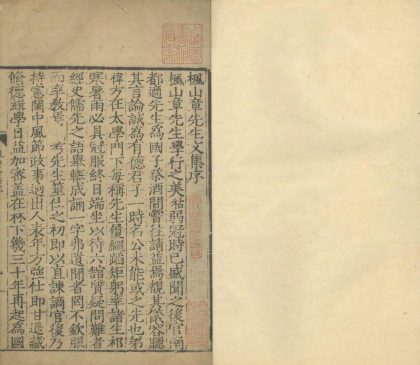 楓山章先生文集序
楓山章先生學行之美祜弱冠時已感聞之後官南
都適先生爲國子祭酒間嘗往請益焉觀其儀容聽
其言論誠爲有德君子一時名公未能或之先也弟
禕方在太學門下每稱先生履繩蹈矩躬率諸生祁
寒暑雨必具冠服終日端坐以待六館質疑問難者
經史儒先之語舉輒成誦一字弗遺聞者罔不欽服
而卒教焉 先生筮仕之初即以直諫謫官後乃
持憲閩中風節政事迥出人表年方強仕即甘退藏
脩德緝學日益加密蓋在林下幾三十年再起爲國